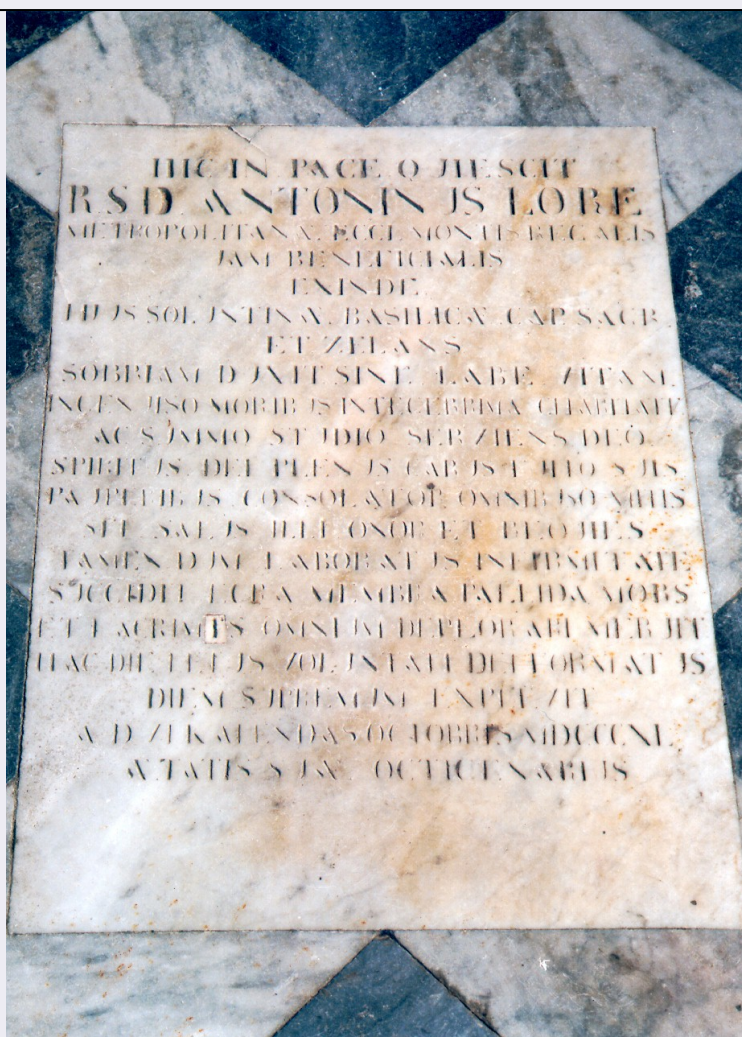 HIC IN PACE QUIESCIT
R.S.D. ANTONINUS LORE
METROPOLITANÆ ECCL. MONTIS REGALIS
JAM BENEFICIALIS
EXINDE
HUJUS SOLUNTINÆ BASILICÆ CAP. SACR.
ET ZELANS
SOBRIAM DUXIT SINE LABE VITAM
MORIBUS INTEGERRIMA CHARITATE
AC SUMMO STUDIO SERVIENS DEO
SPIRITUS DEI PLENUS CARUS SUIS
PAUPERIBUS CONSOLATOR
ET
TAMEN DUM LABORAT INFIRMITATE
SUCCIDIT MEMBRA PALLIDA MORS
ET LACRIMIS OMNIUM DEPLORARI MERUIT
HAC DIE VOLUNTATI DEI
DIEM SUPREMUM EXPLEVIT
A D VI KALENDAS OCTOBRIS MDCCCXL
ÆTATIS SUÆ OCTIGENARIUS